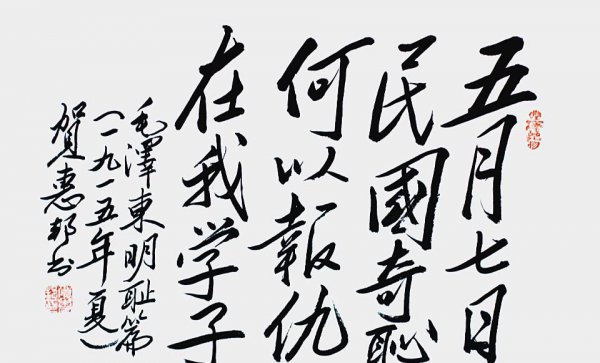 五月七日
民國奇恥
何以報仇
在我学子
毛澤東明耻篇
（一九一五年夏）
賀惠邦书